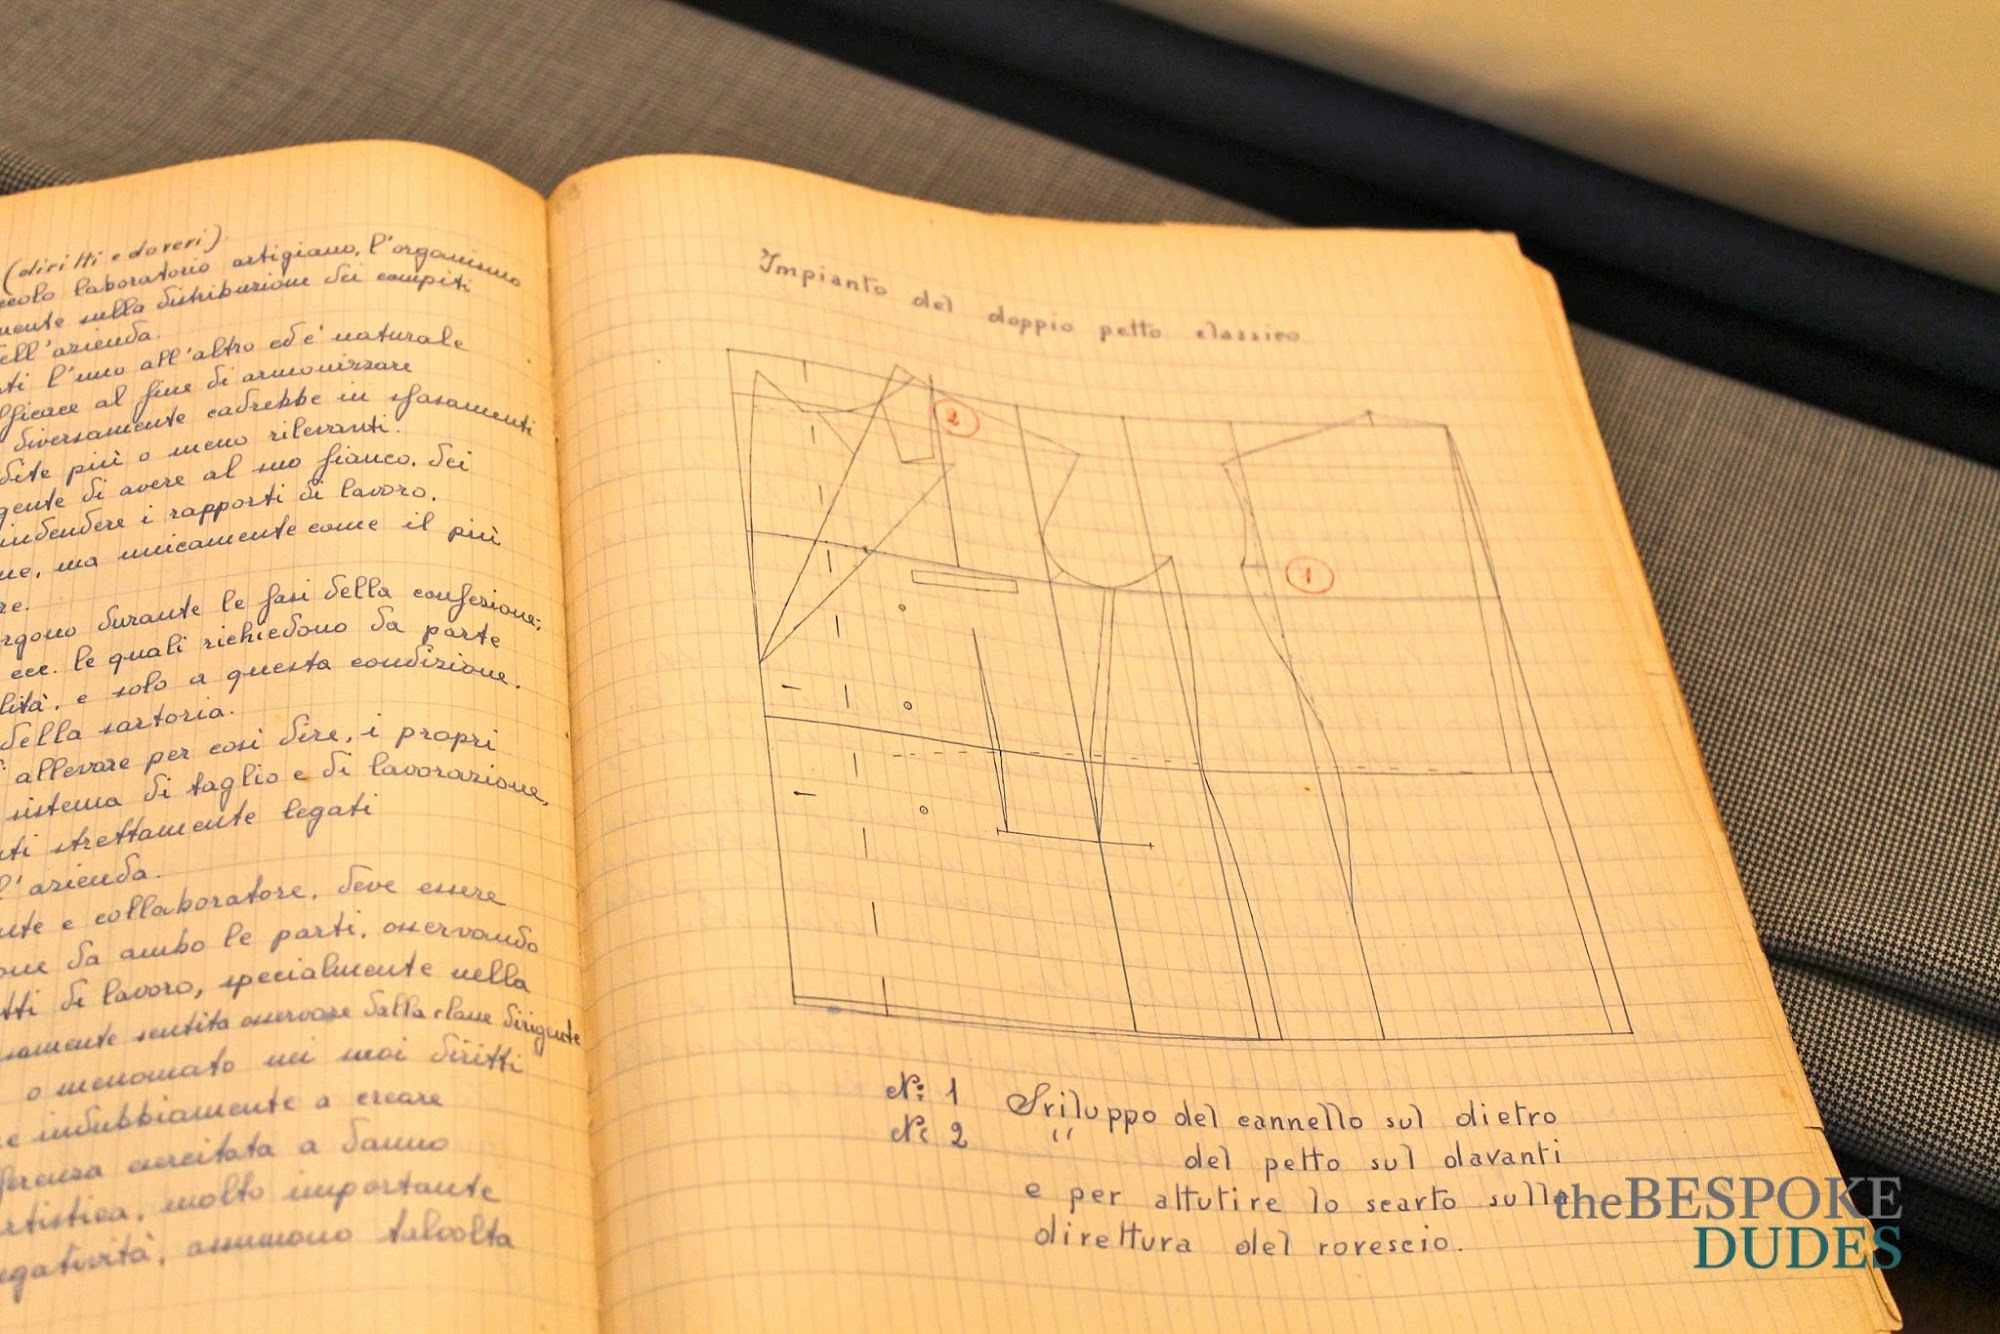 (diritti e doveri).
laboratorio artigiano, l'organismo
sulla distribuzione dei compiti
dell'azienda.
l'uno all'altro ed è naturale
efficace al fine di armonizzare
diversamente cadrebbe in sfasamenti
più o meno rilevanti.
di avere al suo fianco, dei
i rapporti di lavoro,
ma unicamente come il più
durante le fasi della confezione;
ecc. le quali richiedono da parte
e solo a questa condizione,
della sartoria.
allevare per così dire, i propri
sistema di taglio e di lavorazione,
strettamente legati
l'azienda.
e collaboratore, deve essere
da ambo le parti, osservando
di lavoro, specialmente nella
sentita osservare dalla classe dirigente
o menomato nei suoi diritti
indubbiamente a creare
esercitata a danno
molto importante
assumono talvolta
Impianto del doppio petto classico
2
1
N: 1 Sviluppo del cannello sul dietro
N: 2 " del petto sul davanti
e per attutire lo scarto sulla
direttura del rovescio.
theBESPOKE
DUDES